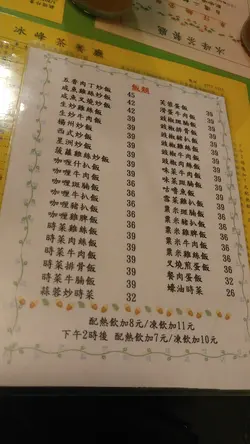 冰峰茶餐廳
飯類
五香肉丁炒飯 45
咸魚雞絲炒飯 42
咸魚叉燒炒飯 42
生炒雞絲飯 39
生炒牛肉飯 39
楊州炒飯 39
西式炒飯 39
星洲炒飯 39
菠蘿雞絲炒飯 39
咖喱什扒飯 39
咖喱牛肉飯 39
咖喱斑腩飯 39
咖喱牛扒飯 39
咖喱豬扒飯 39
咖喱雞髀飯 39
時菜雞絲飯 39
時菜肉絲飯 39
時菜肉片飯 39
時菜排骨飯 39
時菜牛腩飯 39
蒜蓉炒時菜 32
芙蓉蛋飯 39
滑蛋牛肉飯 39
豉椒斑腩飯 39
豉椒排骨飯 39
豉椒牛肉飯 39
豉椒肉絲飯 39
味菜牛肉飯 39
味菜斑腩飯 39
咕嚕肉飯 39
雪菜雞扒飯 39
粟米斑腩飯 39
粟米雞絲飯 39
粟米肉粒飯 39
叉燒煎蛋飯 36
餐肉蛋飯 32
蠔油時菜 26
配熱飲加8元/凍飲加11元
下午2時後 配熱飲加7元/凍飲加10元